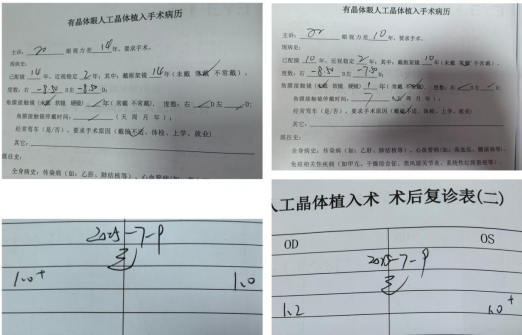 有晶体眼人工晶体植入手术病历
主诉: 眼视力差 14 年,要求手术。
现病史:
已配镜 14 年,近视稳定 2 年;其中:戴框架镜 14 年(未戴 常戴 不常戴),
度数:右 -8.50 D左 -7.50 D;
角膜接触镜(未戴 软镜 硬镜) 年(常戴 不常戴), 度数:右 D左 D;
角膜接触镜停戴时间: (天 周 月 年);
经常驾车(是/否),要求手术原因(戴镜不适、体检、上学、就业)
其它:
既往史:
全身病史:传染病(如:乙肝、肺结核等)、心血管病(如:
有晶体眼人工晶体植入手术病历
主诉: 眼视力差 10 年,要求手术。
现病史:
已配镜 10 年,近视稳定 2 年;其中:戴框架镜 10 年(未戴 常戴 不常戴),
度数:右 -8.50 D左 -7.50 D;
角膜接触镜(未戴 软镜 硬镜) 年(常戴 不常戴), 度数:右 D左 D;
角膜接触镜停戴时间: 7 (天 周 月 年);
经常驾车(是/否),要求手术原因(戴镜不适、体检、上学、就业)
其它:
既往史:
全身病史:传染病(如:乙肝、肺结核等)、心血管病(如:高血压、糖尿病等)、
免疫相关性疾病(如甲亢、干燥综合征、类风湿关节炎、系统性红斑狼疮等)、
2025-7-9
1.0+ 1.0
人工晶体植入术 术后复诊表(二)
OD OS
2025-7-9
1.2 1.0+